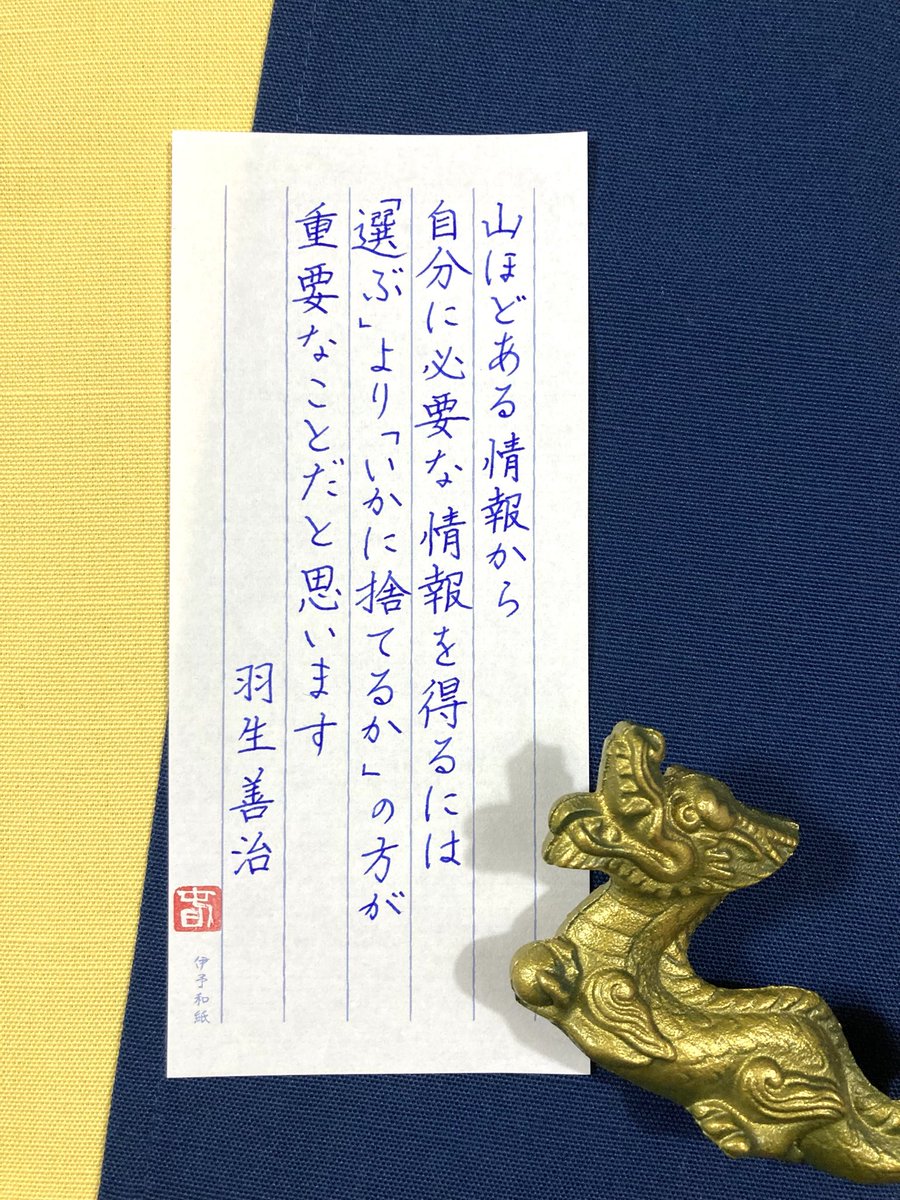 山ほどある情報から
自分に必要な情報を得るには
「選ぶ」より「いかに捨てるか」の方が
重要なことだと思います
羽生善治
伊予和紙